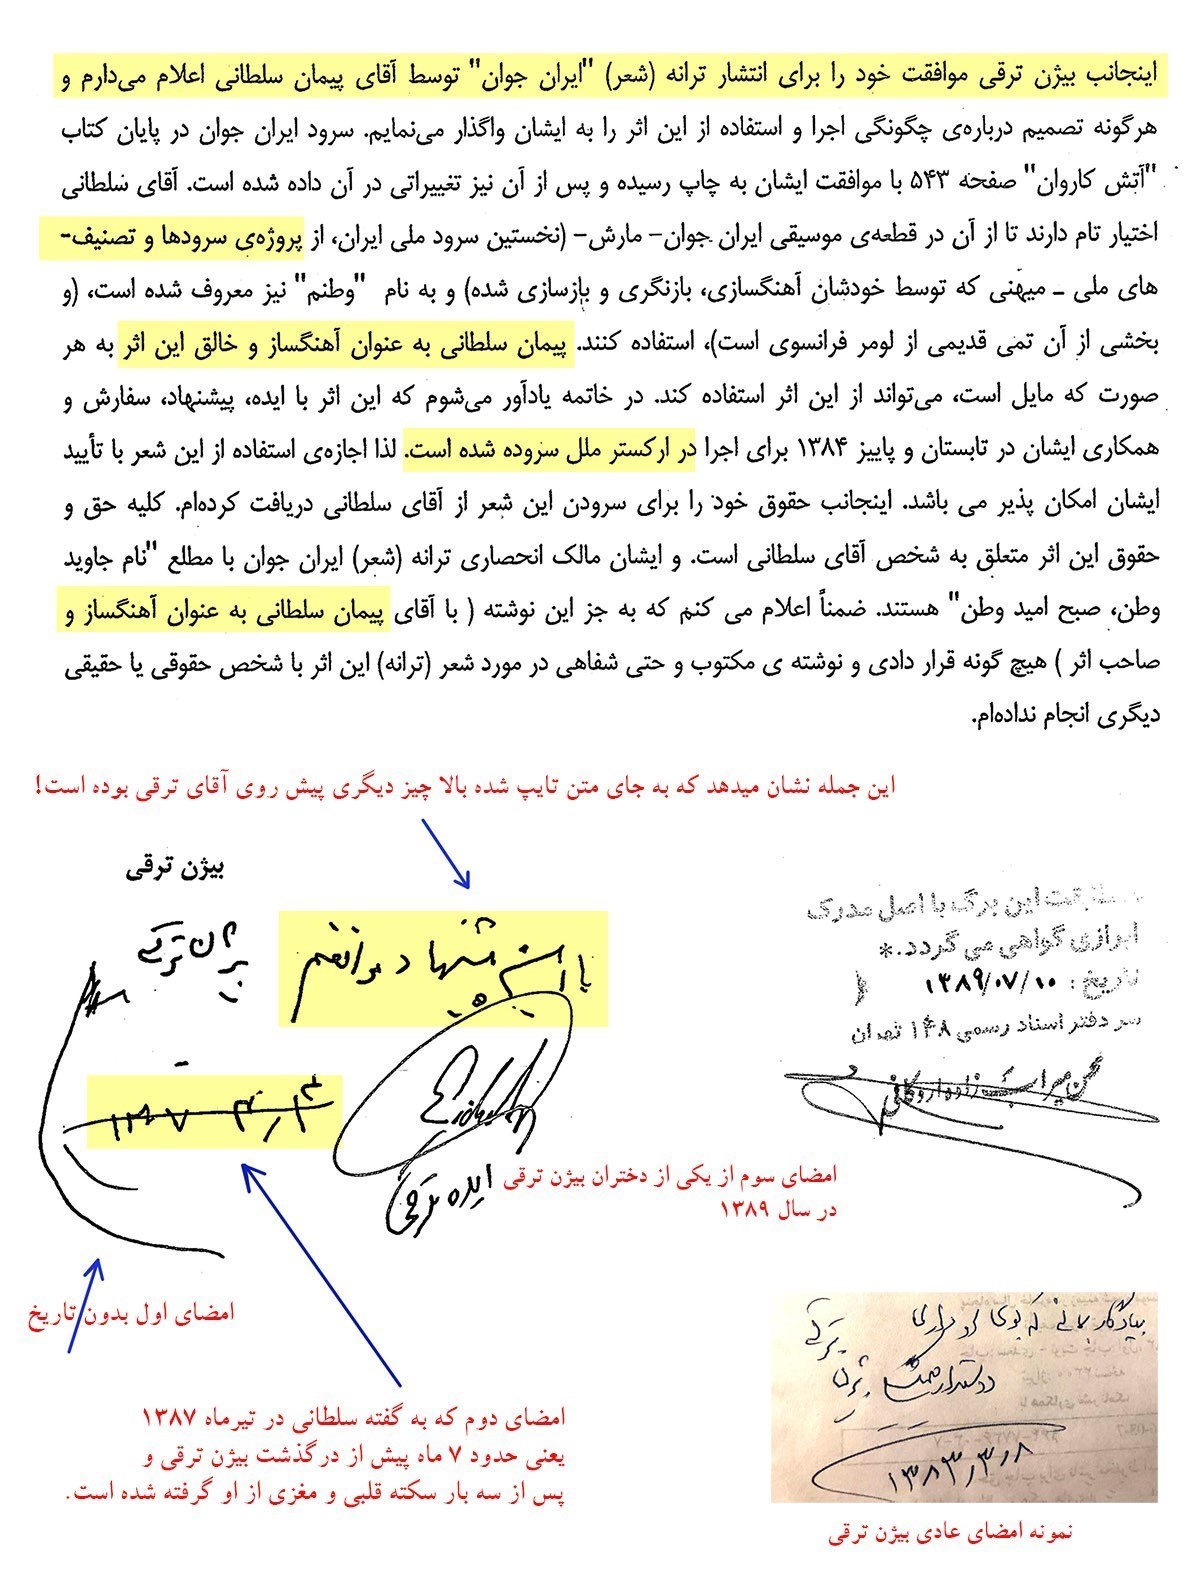 اینجانب بیژن ترقی موافقت خود را برای انتشار ترانه (شعر) "ایران جوان" توسط آقای پیمان سلطانی اعلام می‌دارم و
هرگونه تصمیم درباره‌ی چگونگی اجرا و استفاده از این اثر را به ایشان واگذار می‌نمایم. سرود ایران جوان در پایان کتاب
"آتش کاروان" صفحه ۵۴۳ با موافقت ایشان به چاپ رسیده و پس از آن نیز تغییراتی در آن داده شده است. آقای سلطانی
اختیار تام دارند تا از آن در قطعه‌ی موسیقی ایران جوان- مارش- (نخستین سرود ملی ایران، از پروژه‌ی سرودها و تصنیف-
های ملی ـ میهنی که توسط خودشان آهنگسازی، بازنگری و بازسازی شده) و به نام "وطنم" نیز معروف شده است، (و
بخشی از آن تمی قدیمی از لومر فرانسوی است)، استفاده کنند. پیمان سلطانی به عنوان آهنگساز و خالق این اثر به هر
صورت که مایل است، می‌تواند از این اثر استفاده کند. در خاتمه یادآور می‌شوم که این اثر با ایده، پیشنهاد، سفارش و
همکاری ایشان در تابستان و پاییز ۱۳۸۴ برای اجرا در ارکستر ملل سروده شده است. لذا اجازه‌ی استفاده از این شعر با تأیید
ایشان امکان پذیر می باشد. اینجانب حقوق خود را برای سرودن این شعر از آقای سلطانی دریافت کرده‌ام. کلیه حق و
حقوق این اثر متعلق به شخص آقای سلطانی است. و ایشان مالک انحصاری ترانه (شعر) ایران جوان با مطلع "نام جاوید
وطن، صبح امید وطن" هستند. ضمناً اعلام می کنم که به جز این نوشته ( با آقای پیمان سلطانی به عنوان آهنگساز و
صاحب اثر ) هیچ گونه قرار دادی و نوشته ی مکتوب و حتی شفاهی در مورد شعر (ترانه) این اثر با شخص حقوقی یا حقیقی
دیگری انجام نداده‌ام.
این جمله نشان میدهد که به جای متن تایپ شده بالا چیز دیگری پیش روی آقای ترقی بوده است!
بیژن ترقی
بیژن ترقی
با این پیشنهاد موافقم
مطابقت این برگ با اصل مدرک
ابرازی گواهی می گردد.*
تاریخ: ۱۳۸۹/۰۷/۱۰
سر دفتر اسناد رسمی ۱۴۸ تهران
ایده ترقی
امضای سوم از یکی از دختران بیژن ترقی
در سال ۱۳۸۹
امضای اول بدون تاریخ
امضای دوم که به گفته سلطانی در تیرماه ۱۳۸۷
یعنی حدود ۷ ماه پیش از درگذشت بیژن ترقی و
پس از سه بار سکته قلبی و مغزی از او گرفته شده است.
۱۳۸۳,۳,۸
نمونه امضای عادی بیژن ترقی